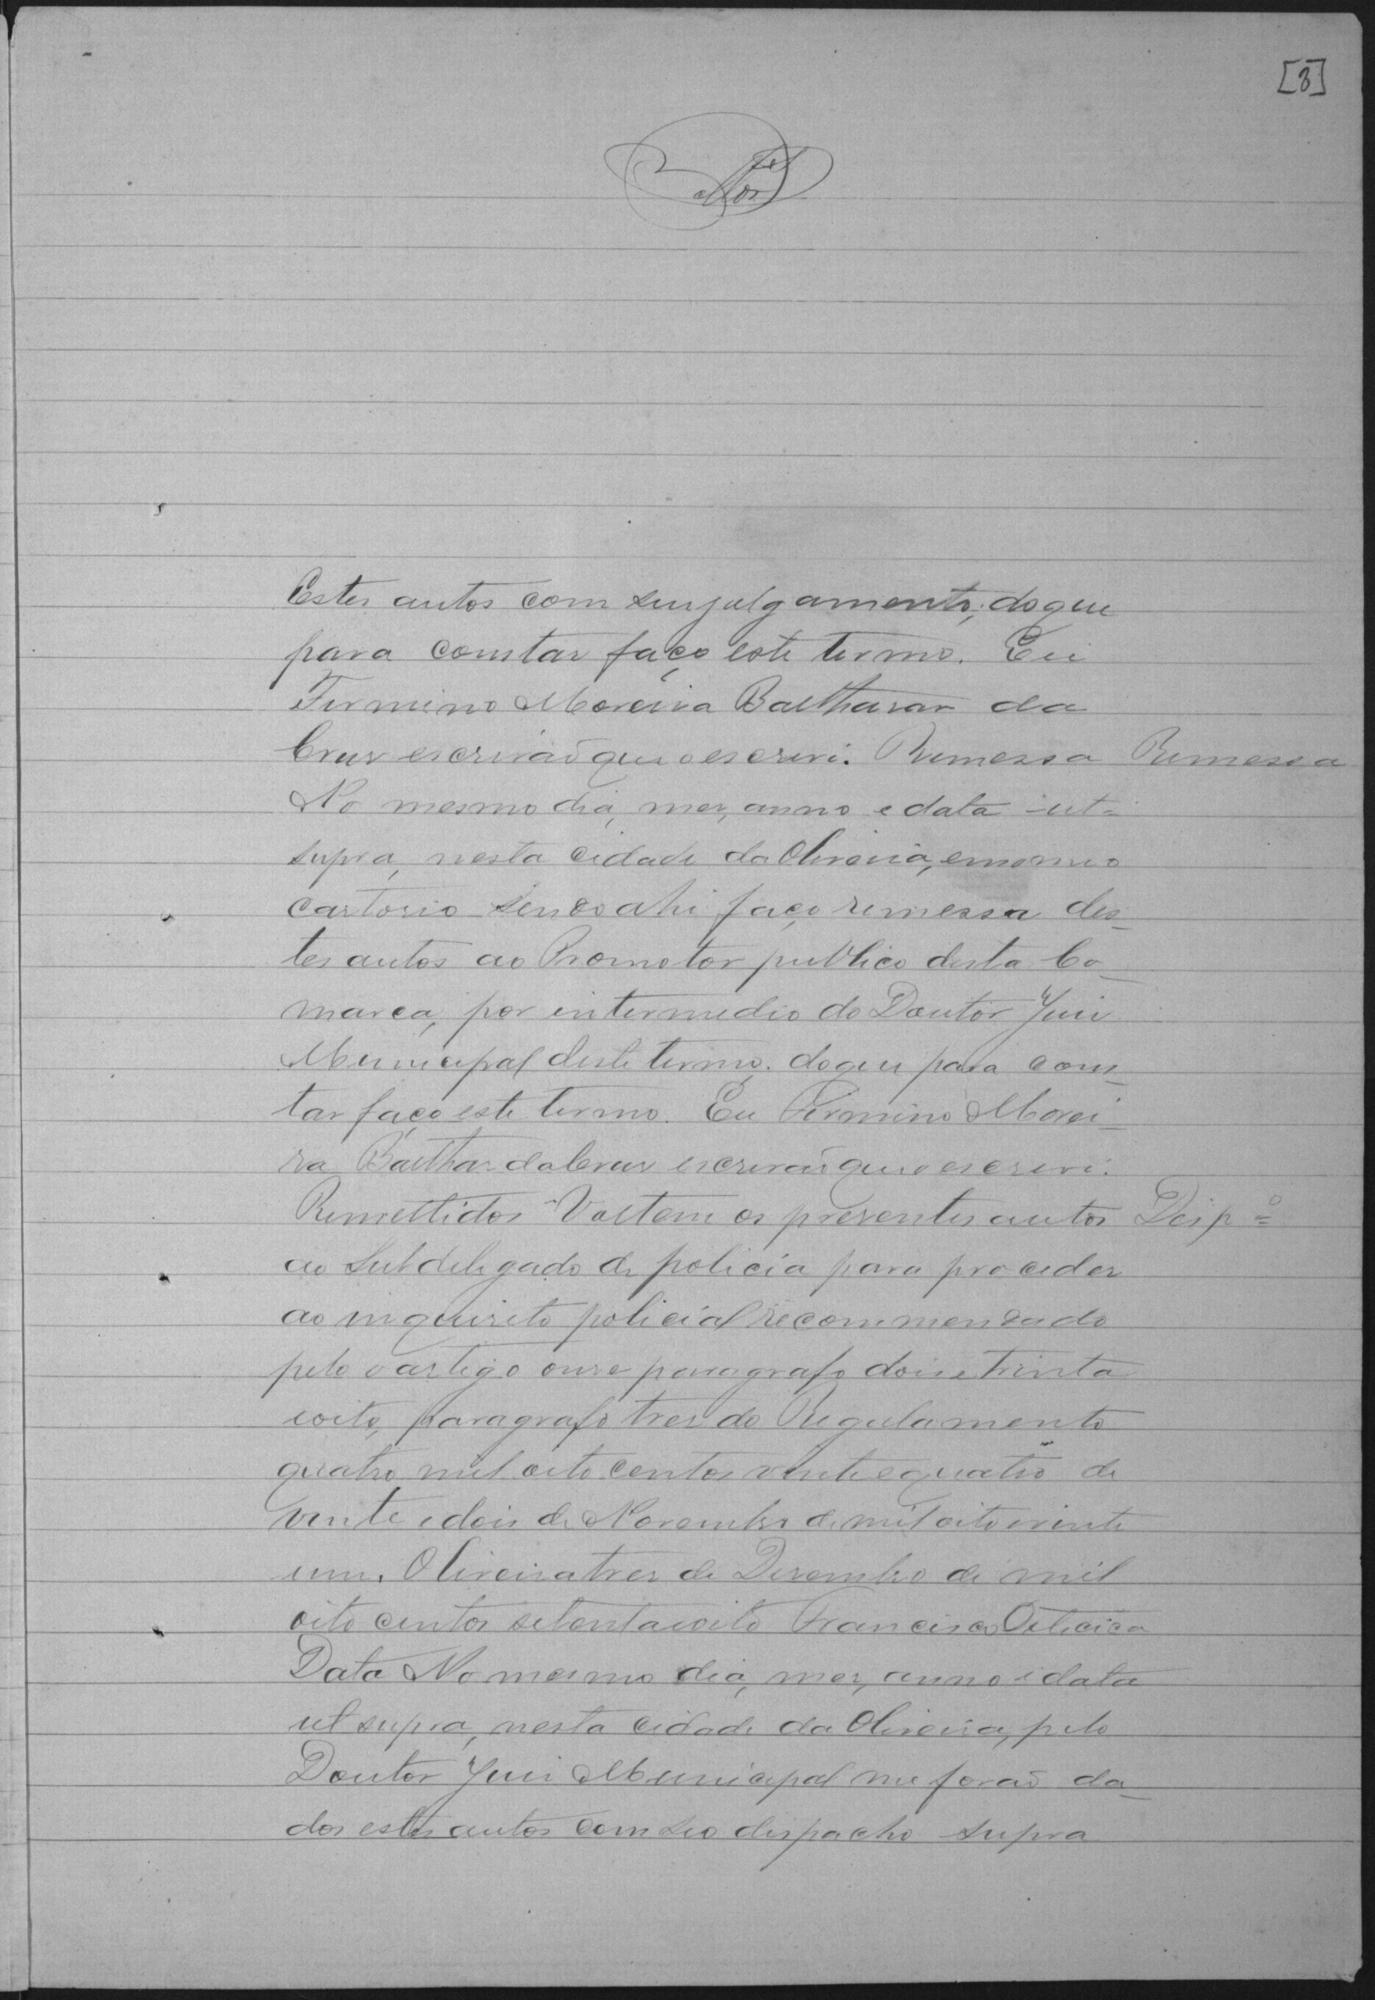 [8]
Estes autos com seu julgamento; do que
para constar faço este termo. Eu
Firmino Moreira Balthasar da
Cruz escrivaõ que o escrevi. Remessa Remessa
No mesmo dia, mez, anno e data ut=
supra, nesta cidade da Oliveira, em o meu
cartorio sendo ahi faço remessa des_
tes autos ao Promotor publico desta Co_
marca, por intermedio do Doutor Juiz
Municipal deste termo. do que para cons_
tar faço este termo. Eu Firmino Morei_
ra Balthar da Cruz escrivaõ que o escrevi.
Remettidos Voltem os presentes autos Desp.º
ao Subdelegado de policia para proceder
ao inquerito policial recommendado
pelo artigo onze paragrafo dois e trinta
eoito, paragrafo tres do Regulamento
quatro mil oito centos vinte e quatro de
vinte e dois de Novembro de mil oito e vinte
um. Oliveira tres de Dezembro de mil
oito centos setenta e oito Francisco
Data No mesmo dia, mez, anno e data
ut supra, nesta cidade da Oliveira, pelo
Doutor Juiz Municipal me foraõ da_
dos estes autos com seo despacho supra